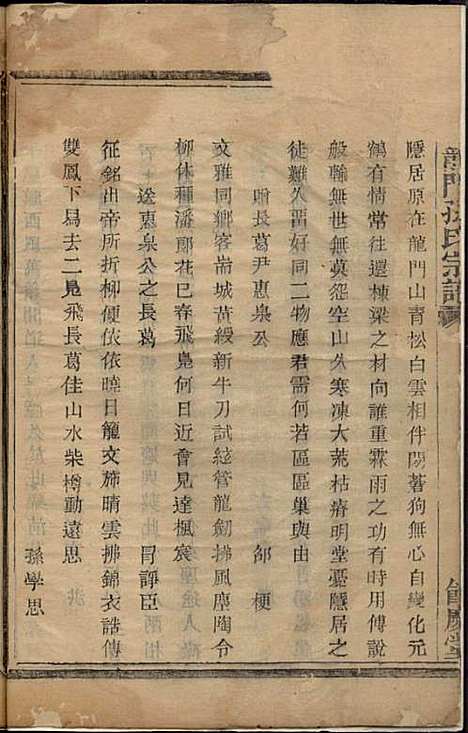 龍門孫氏宗譜
餘慶堂
隱居原在龍門山青松白雲相伴閒蒼狗無心自變化元
鶴有情常往還棟梁之材向誰重霖雨之功有時用傅說
般輸無世無莫怨空山久寒凍大荒枯瘠明堂憂隱居之
徒難久畱好同二物應君需何若區區巢與由
贈長葛尹惠泉公 邹梗
文雅同鄉客崙城葺綬新牛刀試絃管龍劒拂風塵陶令
柳休種潘郎花巳春飛鳧何日近會見達楓宸
送惠泉公之長葛 冐諍臣
征銘出帝所折柳便依依曉日籠文斾晴雲拂錦衣誥傳
雙鳳下舄去二鳧飛長葛佳山水柴樽動遠思
孫學思